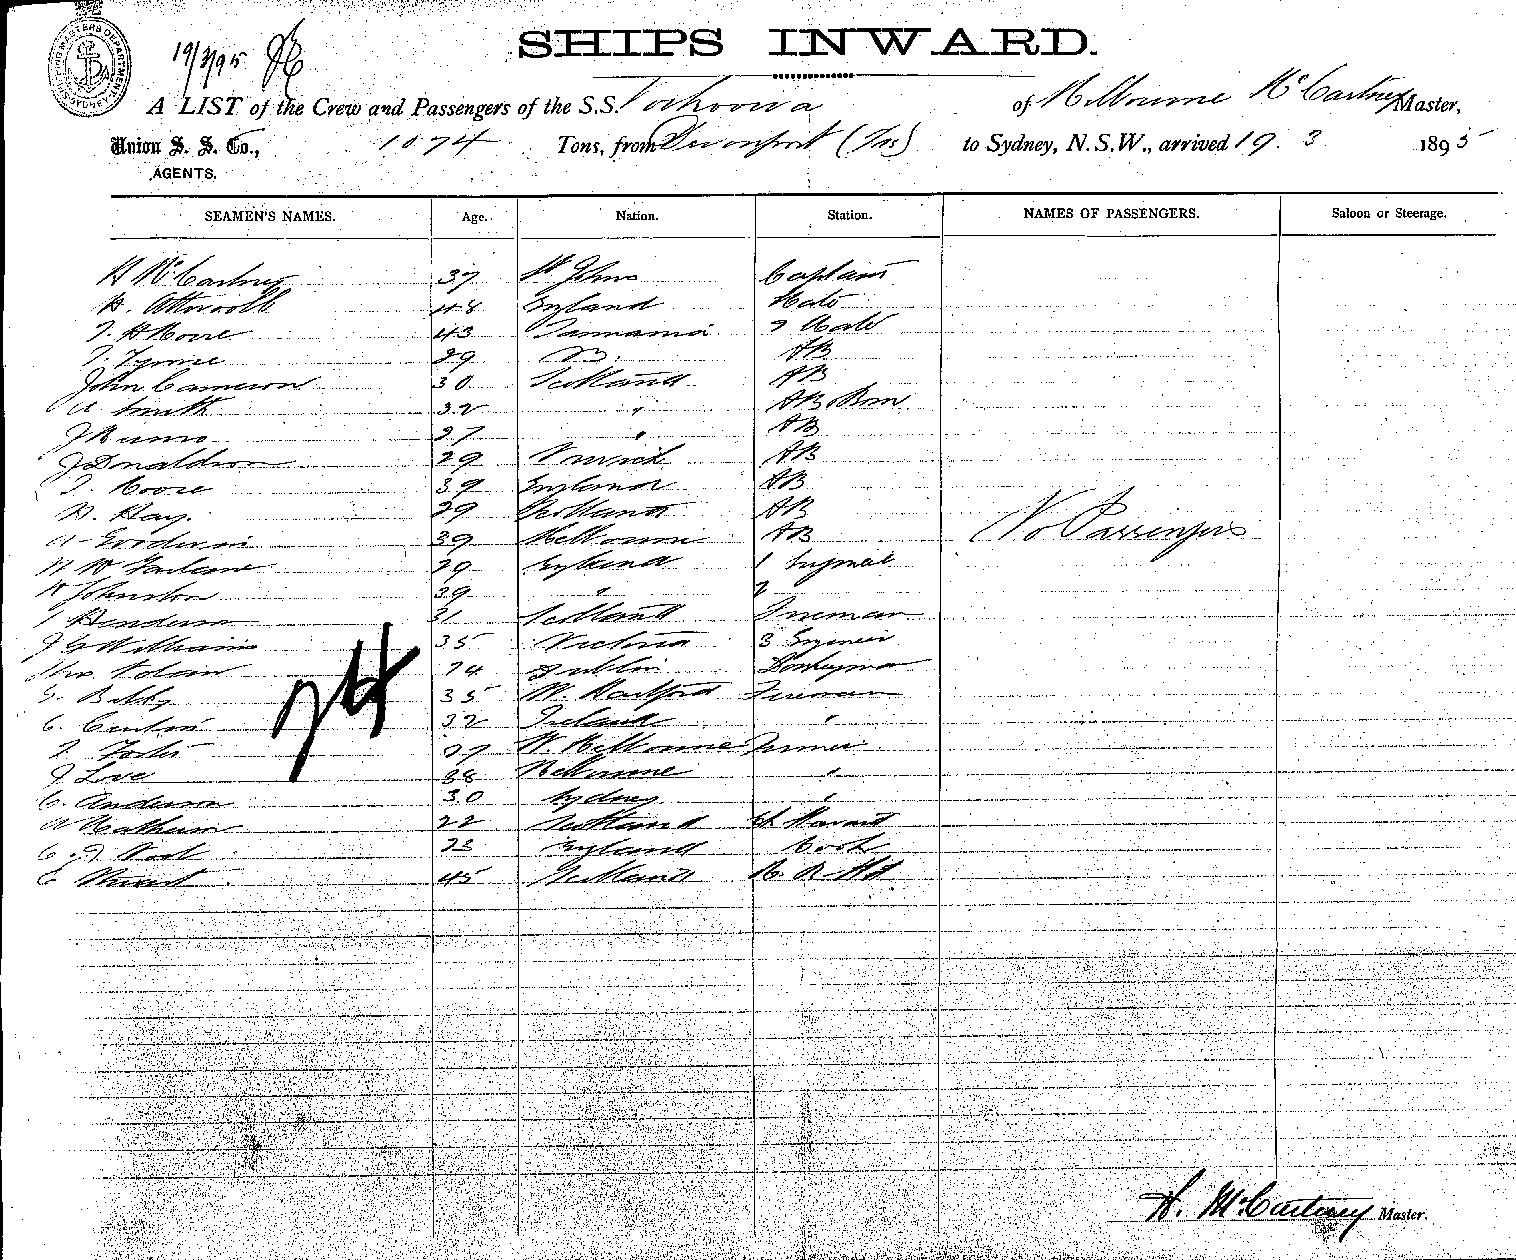 SHIPPING MASTERS DEPARTMENT SYDNEY
19/3/95
SHIPS INWARD.
A LIST of the Crew and Passengers of the S.S. of Melbourne McCartney Master,
Union S. S. Co., 1074 Tons, from Devonport (Tas) to Sydney, N.S.W., arrived 19. 3 1895
AGENTS.
SEAMEN'S NAMES. Age. Nation. Station. NAMES OF PASSENGERS. Saloon or Steerage.
H McCartney 37 St Johns Captain
H. Attwool 48 England Mate
T H Moore 43 Tasmania 2 Mate
29 AB
John Cameron 30 Scotland AB
A Smith 32 " AB
27 " AB
J Donaldson 29 AB
T. Moore 39 England AB
H. Hay. 29 Scotland AB
No Passengers
39 Melbourne AB
29 England 1
W Johnston 39 " 2
Henderson 31 Scotland Fireman
J G Williams 35 Victoria 3 Engineer
Dublin Donkeyman
35 W. Hartford Fireman
32 Ireland "
F. Foster W. Melbourne Trimmer
J Love 38 Melbourne "
C. Anderson 30 Sydney "
22 Scotland
C. J. 23 England Cook
C Stuart 45 Scotland
H. McCartney Master.